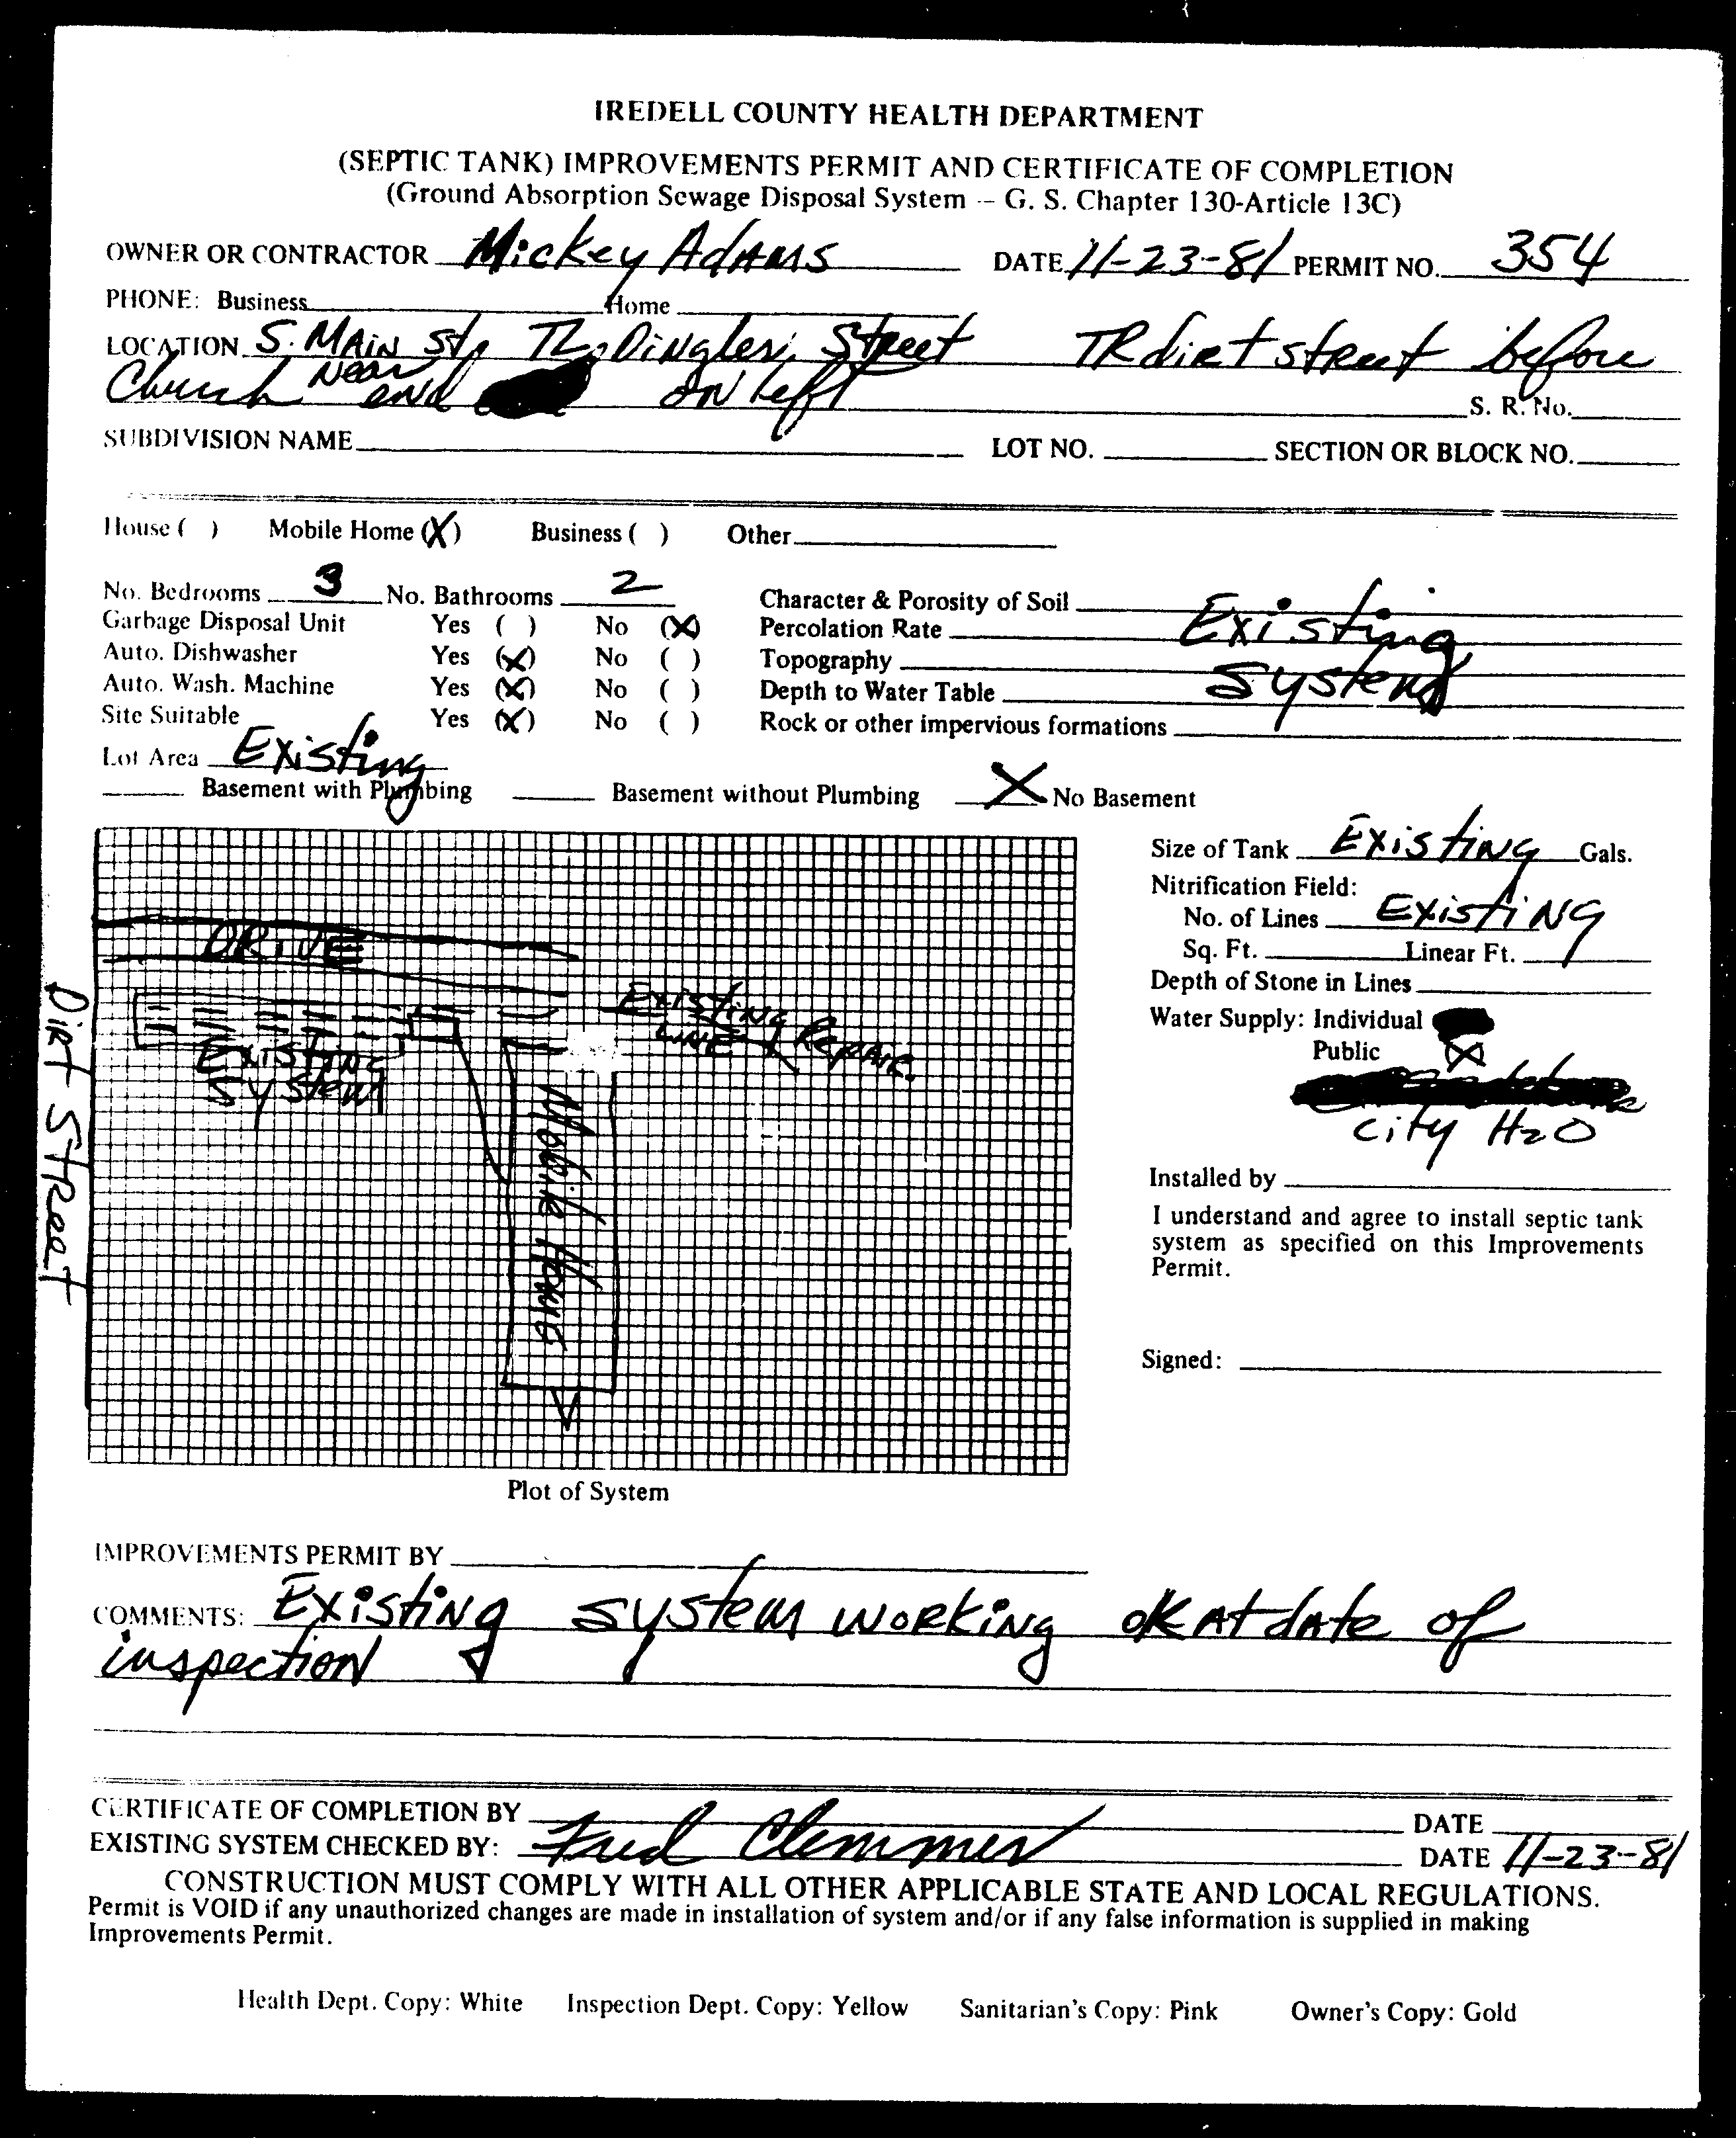 IREDELL COUNTY HEALTH DEPARTMENT
(SEPTIC TANK) IMPROVEMENTS PERMIT AND CERTIFICATE OF COMPLETION
(Ground Absorption Sewage Disposal System -- G. S. Chapter 130-Article 13C)
OWNER OR CONTRACTOR Mickey Adams DATE 11-23-81 PERMIT NO. 354
PHONE: Business Home
LOCATION S. Main St, TL Street TR dirt street before
Church near end on left S. R. No.
SUBDIVISION NAME LOT NO. SECTION OR BLOCK NO.
House ( ) Mobile Home (X) Business ( ) Other
No. Bedrooms 3 No. Bathrooms 2 Character & Porosity of Soil
Garbage Disposal Unit Yes ( ) No (X) Percolation Rate Existing
Auto. Dishwasher Yes (X) No ( ) Topography
Auto. Wash. Machine Yes (X) No ( ) Depth to Water Table System
Site Suitable Yes (X) No ( ) Rock or other impervious formations
Lot Area Existing
Basement with Plumbing Basement without Plumbing X No Basement
Size of Tank Existing Gals.
Nitrification Field:
No. of Lines Existing
Sq. Ft. Linear Ft.
Depth of Stone in Lines
Water Supply: Individual
Public X
City H2O
Installed by
I understand and agree to install septic tank
system as specified on this Improvements
Permit.
Signed:
DRIVE
Existing
Line Repair.
Existing
System
Mobile Home
Dirt Street
Plot of System
IMPROVEMENTS PERMIT BY
COMMENTS: Existing system working ok at date of
inspection
CERTIFICATE OF COMPLETION BY DATE
EXISTING SYSTEM CHECKED BY: Fred Clemmer DATE 11-23-81
CONSTRUCTION MUST COMPLY WITH ALL OTHER APPLICABLE STATE AND LOCAL REGULATIONS.
Permit is VOID if any unauthorized changes are made in installation of system and/or if any false information is supplied in making
Improvements Permit.
Health Dept. Copy: White Inspection Dept. Copy: Yellow Sanitarian's Copy: Pink Owner's Copy: Gold